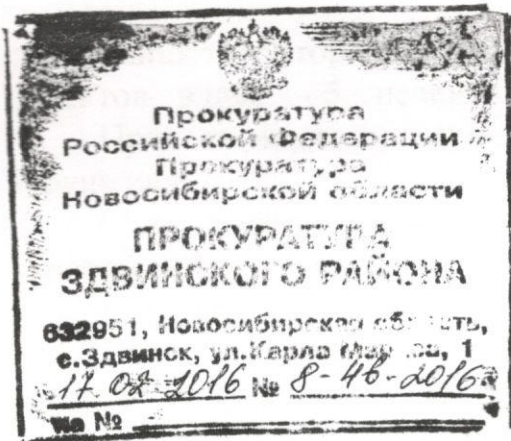 Прокуратура
Российской Федерации
Прокуратура
Новосибирской области
ПРОКУРАТУРА
ЗДВИНСКОГО РАЙОНА
632951, Новосибирская область,
с.Здвинск, ул.Карла Маркса, 1
17.02.2016 № 8-4б-2016
На №